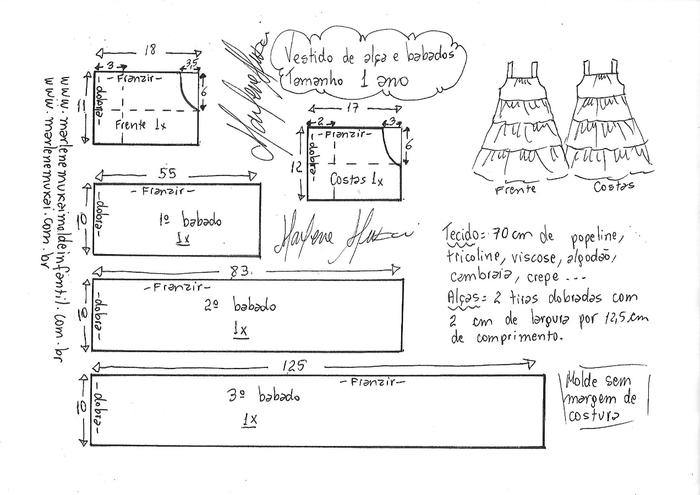 Vestido de alça e babados
Tamanho 1 ano
18
3
3,5
Franzir
dobra
11
6
Frente 1x
17
2
3
Franzir
dobra
12
6
Costas 1x
Frente
Costas
55
Franzir
dobra
10
1º babado
1x
Marlene Mukai
83
Franzir
dobra
10
2º babado
1x
125
Franzir
dobra
10
3º babado
1x
Tecido: 70 cm de popeline,
tricoline, viscose, algodão,
cambraia, crepe ...
Alças: 2 tiras dobradas com
2 cm de largura por 12,5 cm
de comprimento.
Molde sem
margem de
costura
www.marlenemukaimoldeinfantil.com.br
www.marlenemukai.com.br